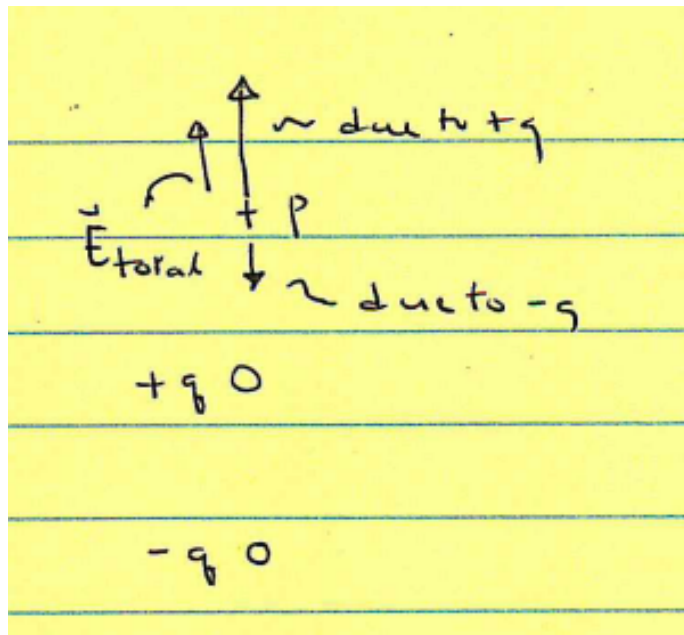 ~ due to +q
+ P
E⃗total
~ due to -q
+q O
-q O